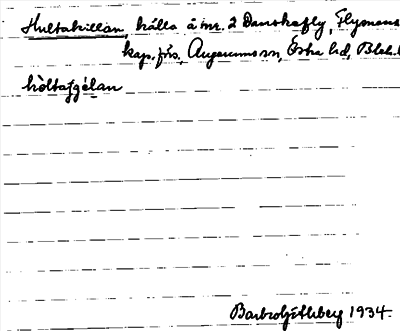 Hultakillan, källa å nr. 2 Danskafly, Flymens
kap. förs., Augerums sn, Östra hd, Blek. l
hòltaʒélan
Barbro Ljétsberg 1934.